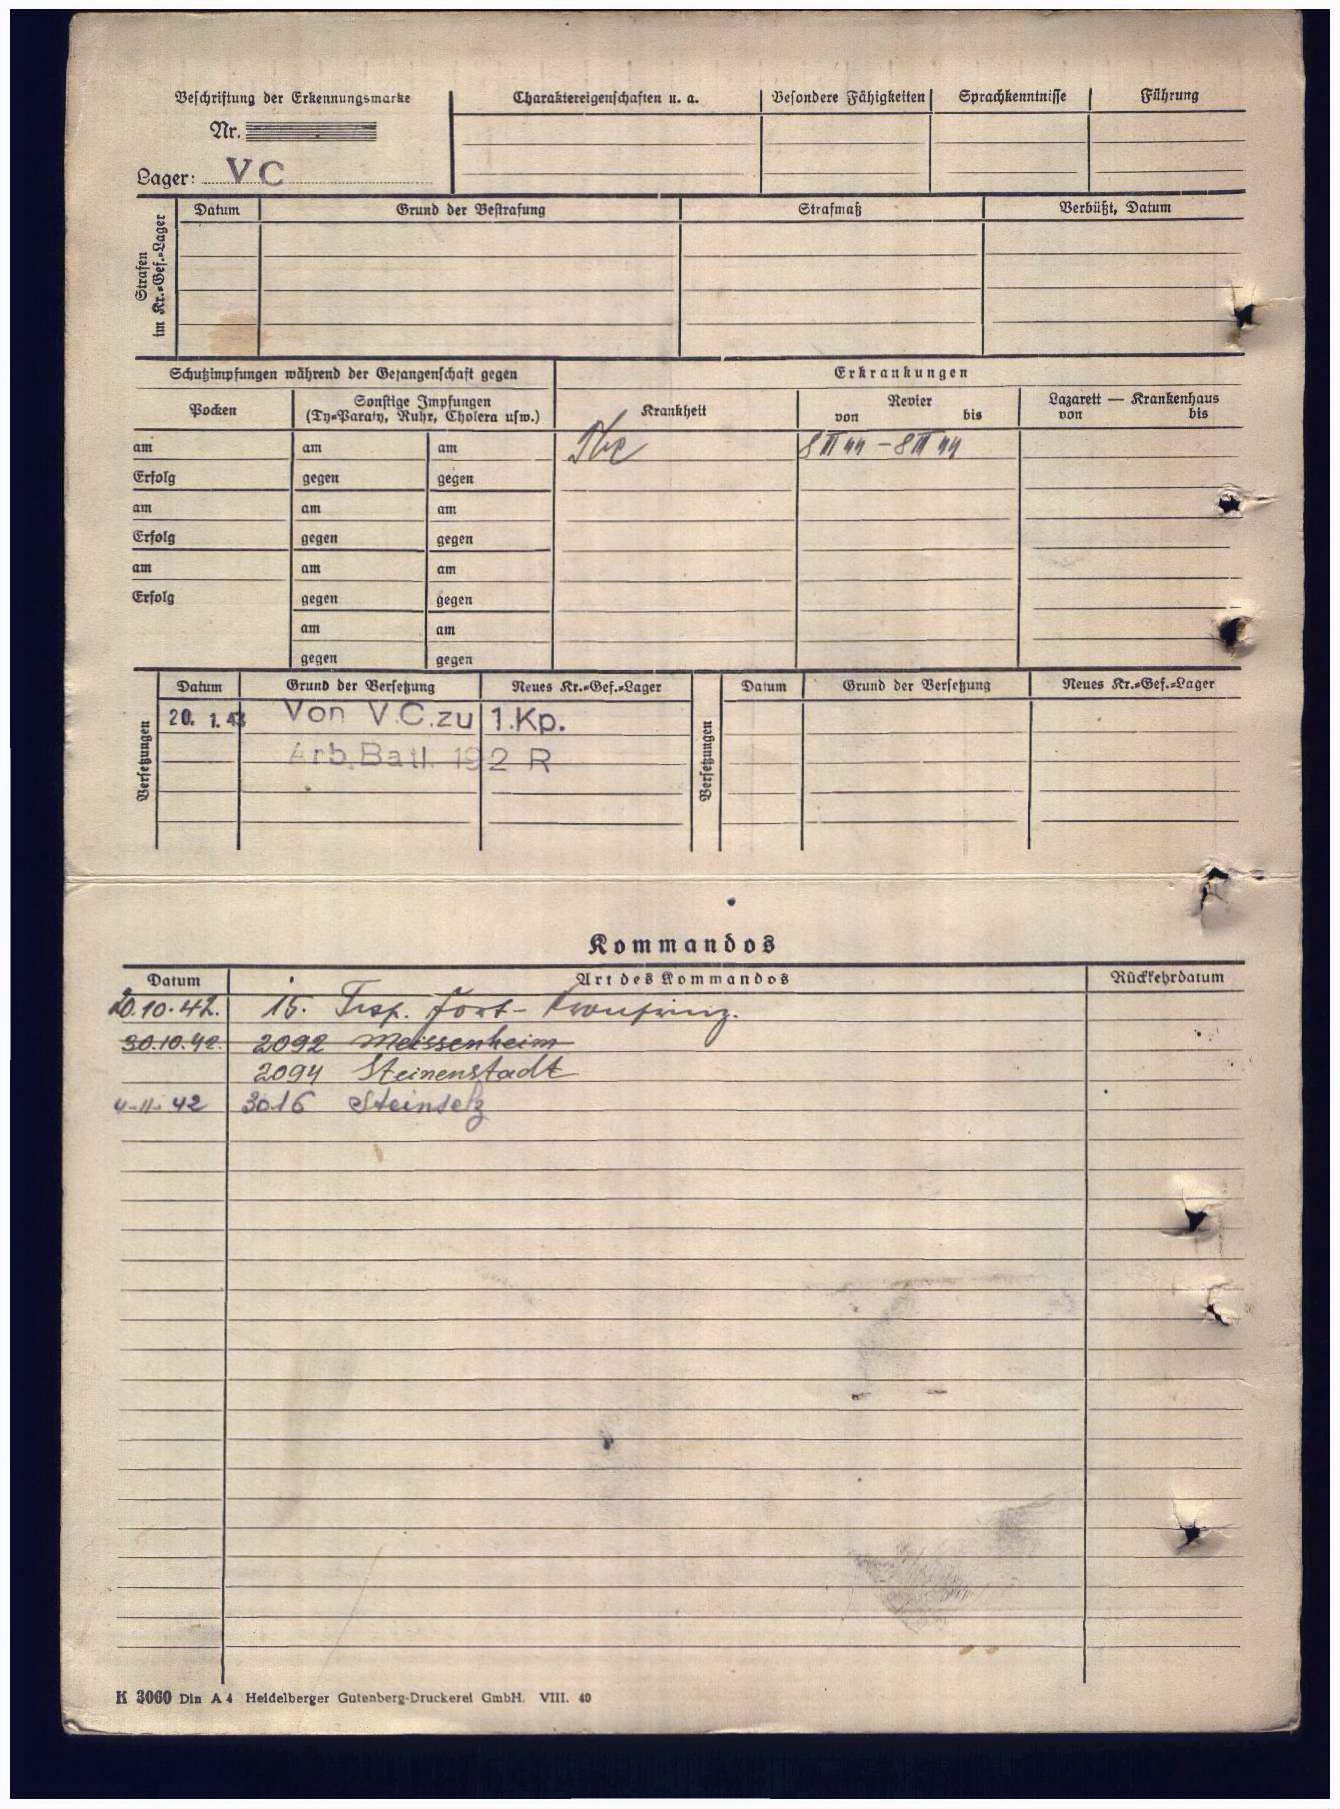 Beschriftung der Erkennungsmarke
Nr.
Lager: VC
Charaktereigenschaften u. a.
Besondere Fähigkeiten
Sprachkenntnisse
Führung
Strafen
im Kr.-Gef.-Lager
Datum
Grund der Bestrafung
Strafmaß
Verbüßt, Datum
Schutzimpfungen während der Gefangenschaft gegen
Erkrankungen
Pocken
Sonstige Impfungen
(Ty-Paraty, Ruhr, Cholera usw.)
Krankheit
Revier
von bis
Lazarett — Krankenhaus
von bis
am am am
8 III 44 – 8 III 44
Erfolg gegen gegen
am am am
Erfolg gegen gegen
am am am
Erfolg gegen gegen
am am
gegen gegen
Versetzungen
Datum Grund der Versetzung Neues Kr.-Gef.-Lager
20. 1. 43 Von V.C. zu 1.Kp.
Arb. Batl. 192 R
Versetzungen
Datum Grund der Versetzung Neues Kr.-Gef.-Lager
Kommandos
Datum Art des Kommandos Rückkehrdatum
20.10.42. 15. Trsp. Fort - Kronprinz.
30.10.42. 2092 Meissenheim
2094 Steinenstadt
4.11.42 3016 Steinselz
K 3060 Din A 4 Heidelberger Gutenberg-Druckerei GmbH. VIII. 40